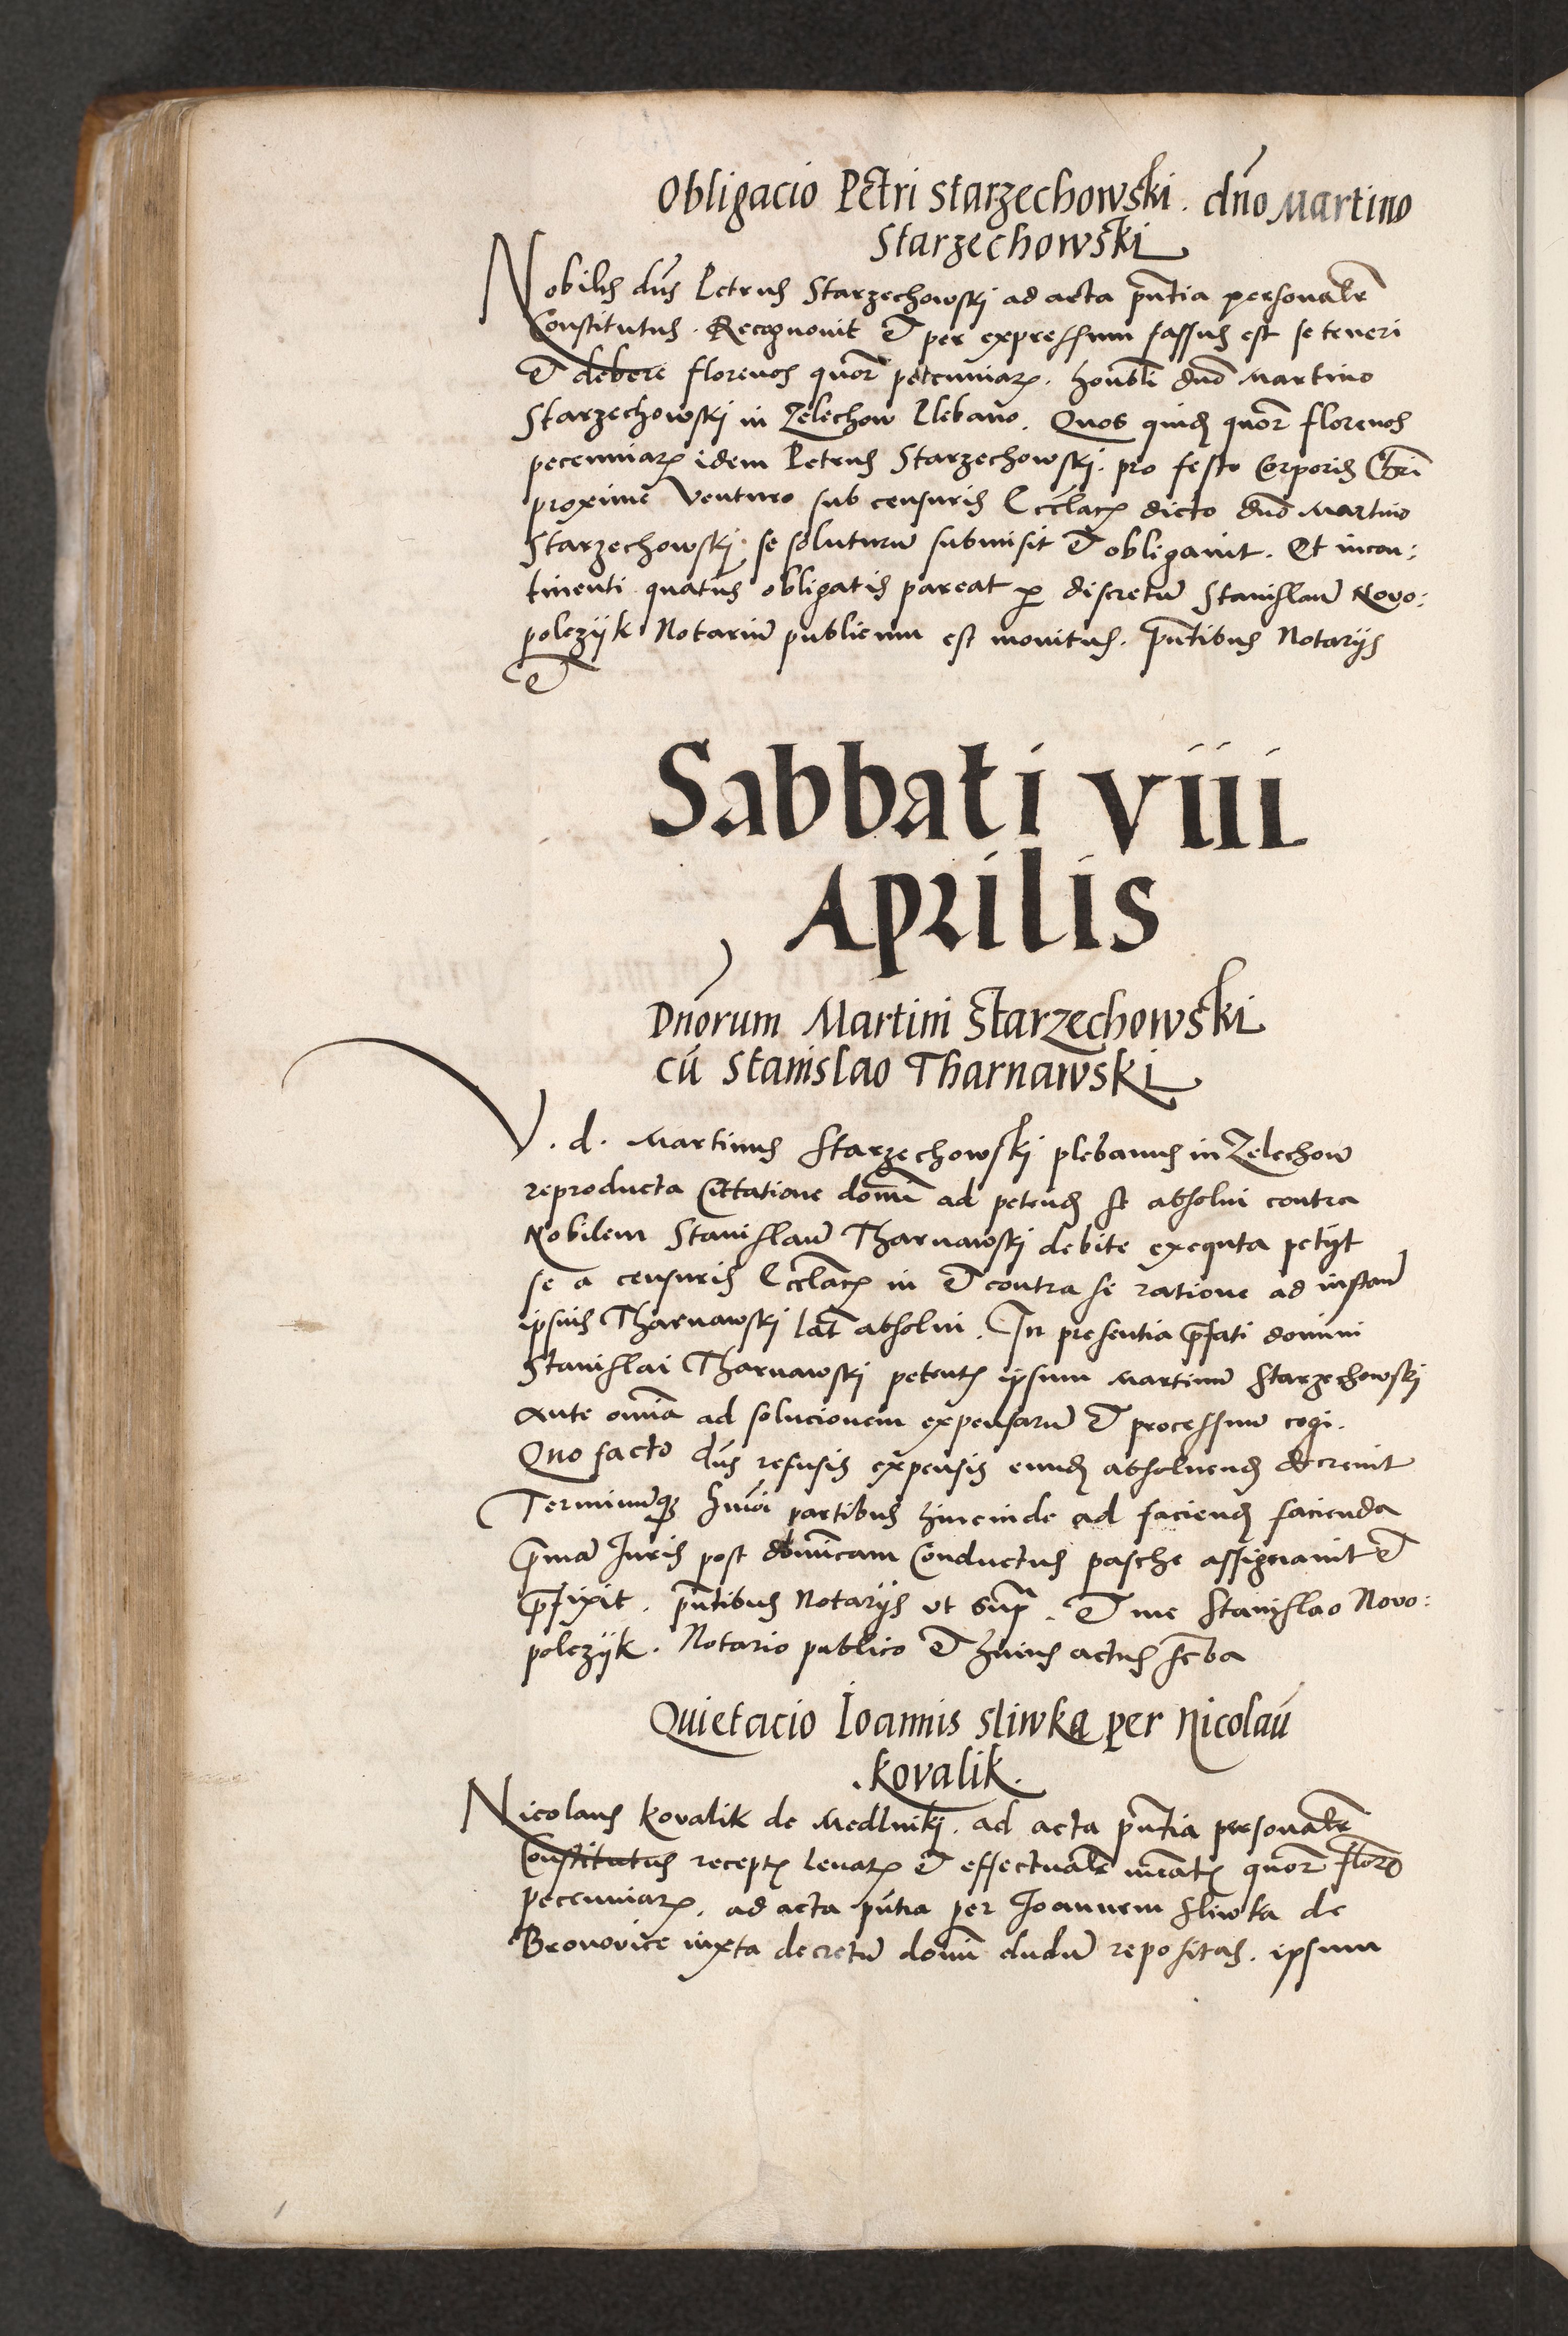 Obligacio Petri Starzechowski . dno Martino
Starzechowski
Nobilis dns Petrus Starzechowskj ad acta pntia personalr
Constitutus . Recognovit et per expressum fassus est se teneri
et debere florenos quor pecuniarꝝ . honbli dno Martino
Starzechowskj in Zelechow Plebano . Quos quidẽ quor florenos
pecuniarꝝ idem Petrus Starzechowskj . pro festo Corporis Chri
proxime venturo sub censuris Ecclarꝝ dicto dno Martino
Starzechowskj se soluturũ submisit et obligavit . Et incon:
tinenti quatus obligatis pareat ꝑ discretũ Stanislaũ Novo:
polczyk Notariũ publicum est monitus . pntibus Notarijs
et
Sabbati viii
Aprilis
Dnorum Martini Starzechowski
cũ Stanislao Tharnawski
V . d . Martinus Starzechowskj plebanus in Zelechow
reproducta Cittatione domi ad petendẽ se absolvi contra
Nobilem Stanislaũ Tharnawskj debite exequta petijt
se a censuris Ecclarꝝ in et contra se ratione ad instanc
ipsius Tharnawskj lat absolvi . In presentia p̃fati domini
Stanislai Tharnawskj petentꝭ ipsum Martinũ Starzechowskj
Ante omia ad solucionem expensarũ et processuum cogi .
Quo facto dns refusis expensis eundẽ absolvendẽ decrevit
Terminumqꝫ partibus hincinde ad faciendẽ facienda
p̃ma Juris post dominicam Conductus pasche assignavit et
p̃fixit . pntibus Notarijs ut sup̃ . et me Stanislao Novo:
polczyk . Notario publico et huius actus scba
Quietacio Ioannis Sliwka per Nicolaũ
. kovalik .
Nicolaus kovalik de Medlnikj . ad acta pntia personalr
Constitutus receptꝭ levatꝭ et effectualr nũeatꝭ quor floro
pecuniarꝝ . ad acta pntia per Joannem Sliwka de
Bronovice iuxta decretũ domi dudũ repositas . ipsum